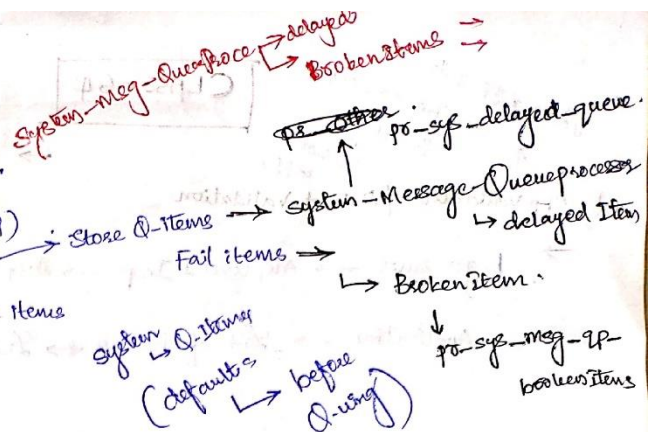 System-Msg-QueueProce → delayed
→ Broken items →
→
pr_sys_delayed_queue.
→ Store Q-Items → System-Message-Queueprocesses
↳ delayed Item
Fail items →
↳ Broken Item.
Items
↓
pr-sys-msg-qp-
brokenitems
System
↳ Q-Items
(defaults
↳ before
Q-uing)